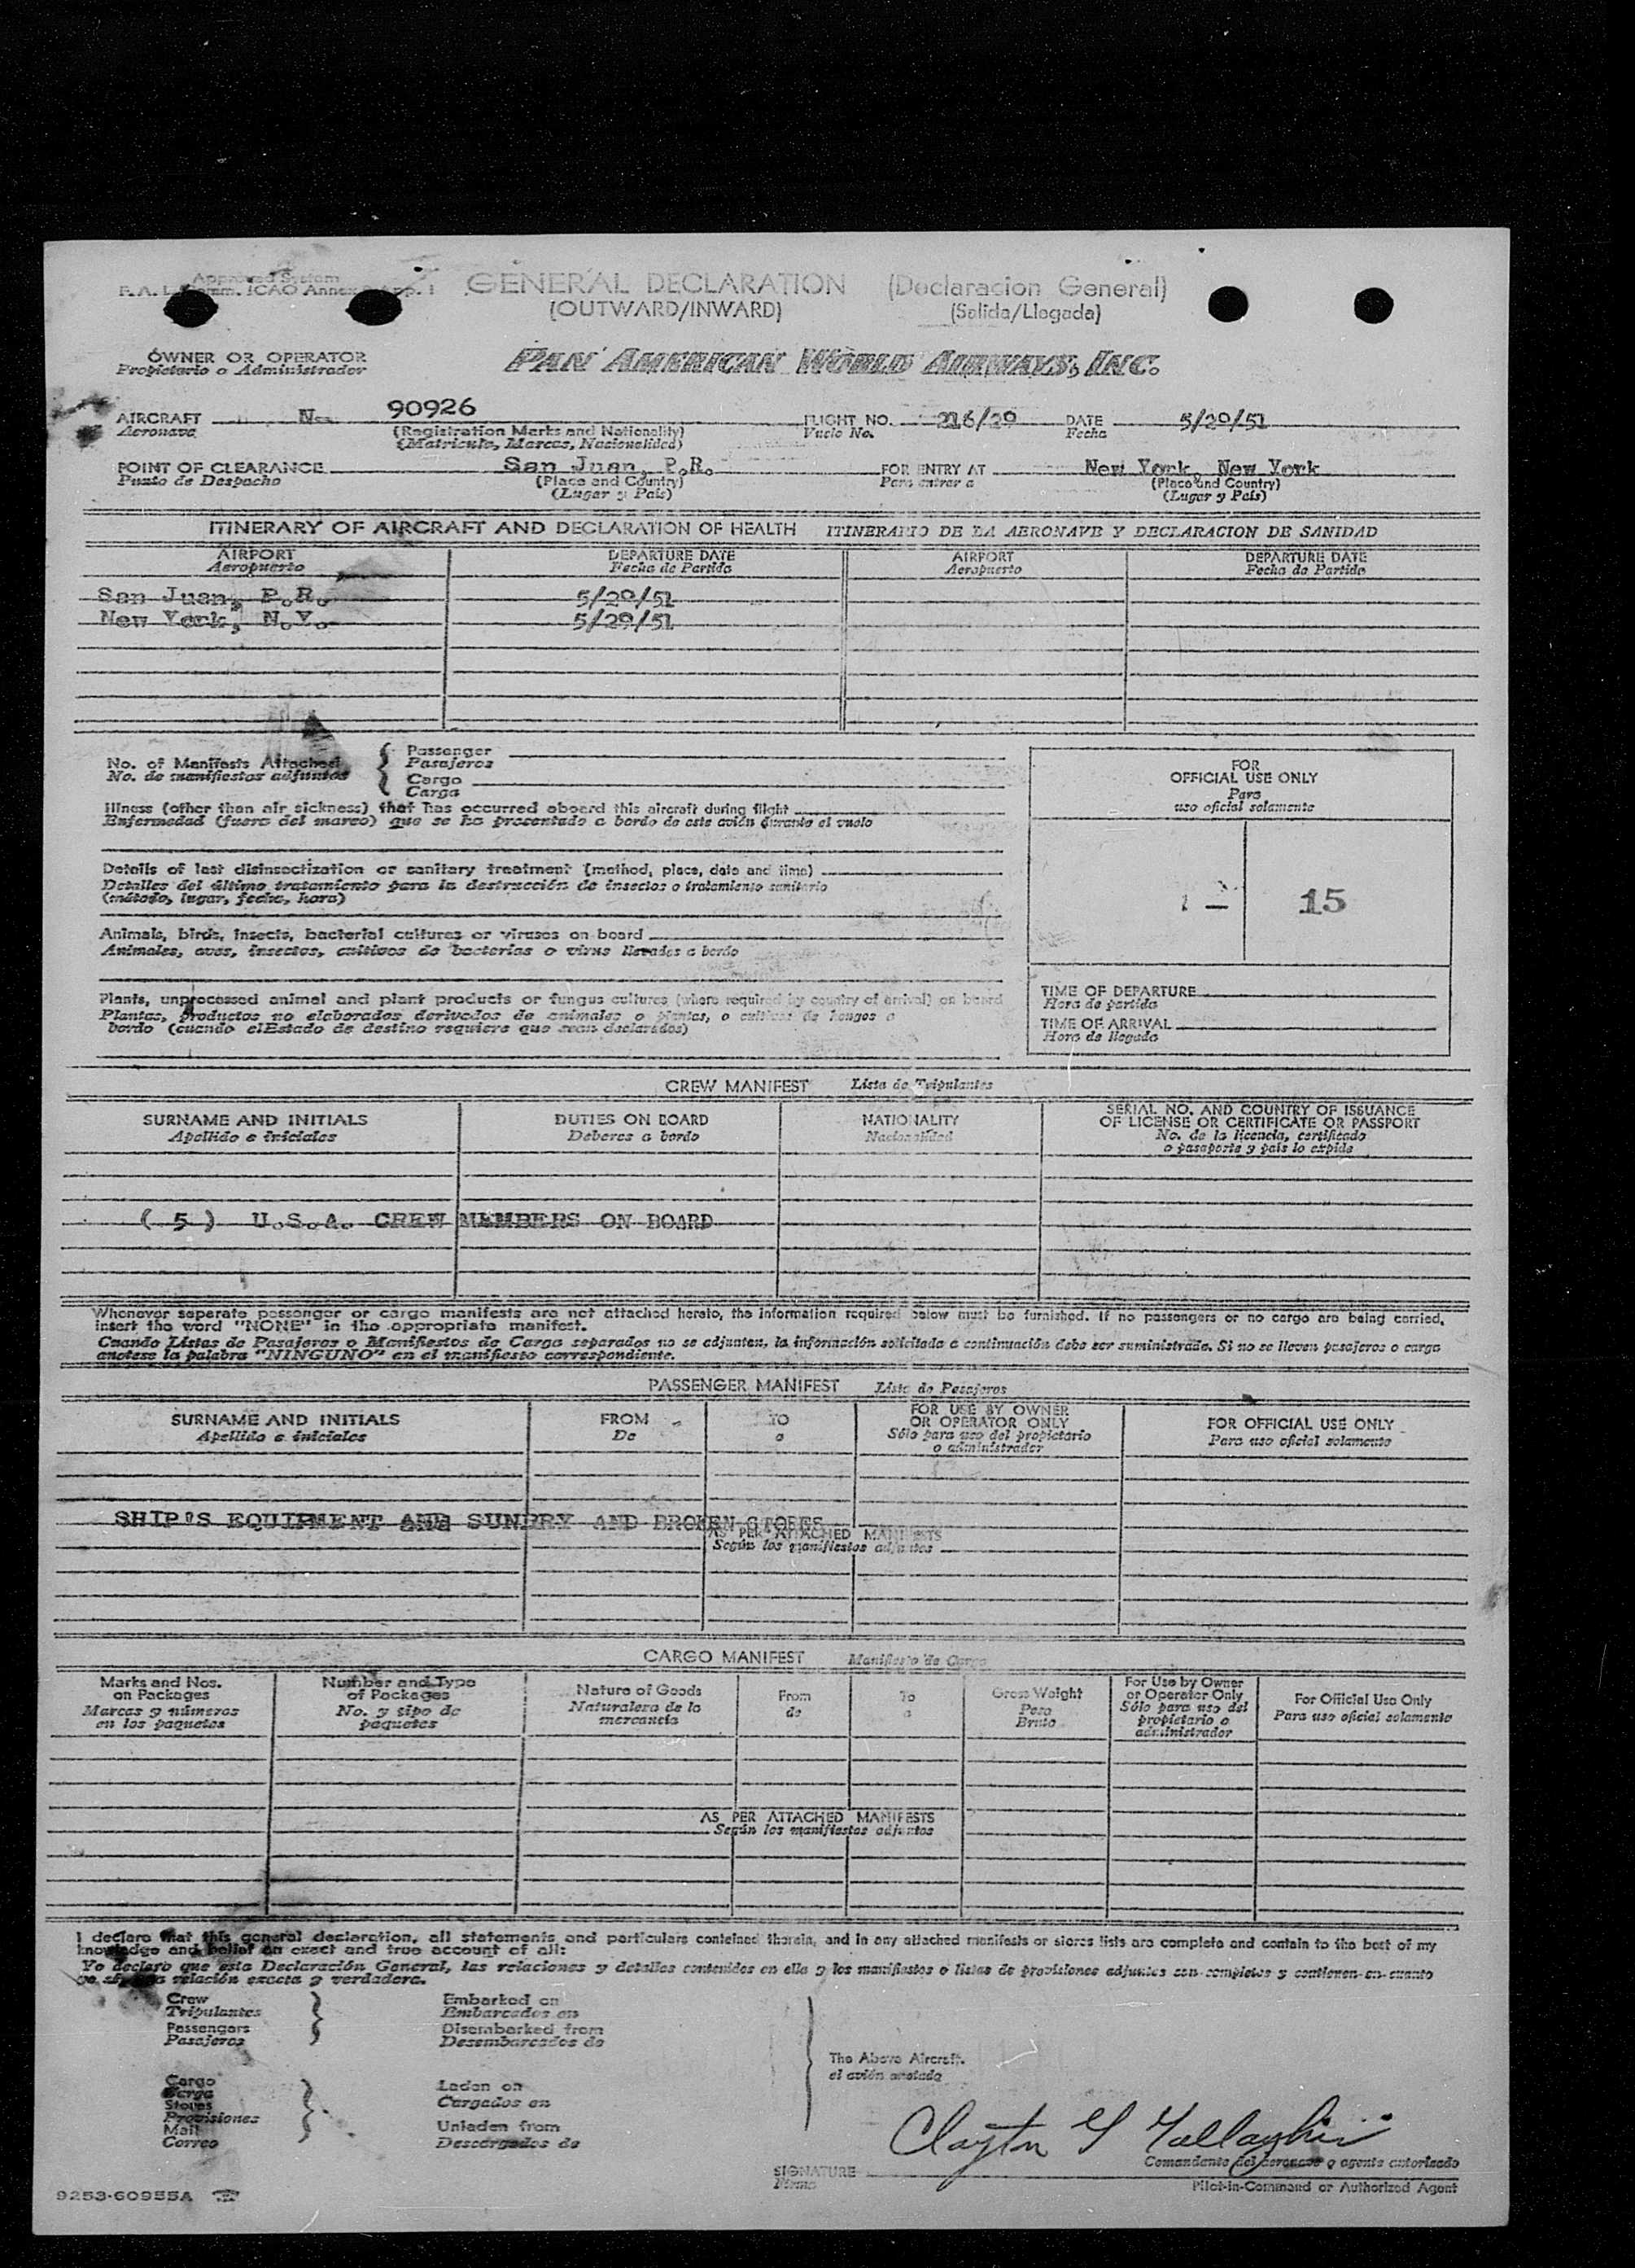 Approved System
F.A.L. Comm. ICAO Annex 9 App. 1
GENERAL DECLARATION (Declaracion General)
(OUTWARD/INWARD) (Salida/Llegada)
OWNER OR OPERATOR
Propietario o Administrador
PAN AMERICAN WORLD AIRWAYS, INC.
AIRCRAFT N- 90926 FLIGHT NO. 216/29 DATE 5/29/51
Aeronave (Registration Marks and Nationality) Vuelo No. Fecha
(Matricula, Marcas, Nacionalidad)
POINT OF CLEARANCE San Juan, P.R. FOR ENTRY AT New York, New York
Punto de Despacho (Place and Country) Para entrar a (Place and Country)
(Lugar y Pais) (Lugar y Pais)
ITINERARY OF AIRCRAFT AND DECLARATION OF HEALTH ITINERARIO DE LA AERONAVE Y DECLARACION DE SANIDAD
AIRPORT DEPARTURE DATE AIRPORT DEPARTURE DATE
Aeropuerto Fecha de Partida Aeropuerto Fecha de Partida
San Juan, P.R. 5/29/51
New York, N.Y. 5/29/51
No. of Manifests Attached
No. de manifiestos adjuntos
Passenger
Pasajeros
Cargo
Carga
FOR
OFFICIAL USE ONLY
Para
uso oficial solamente
Illness (other than air sickness) that has occurred aboard this aircraft during flight
Enfermedad (fuera del mareo) que se ha presentado a bordo de este avión durante el vuelo
Details of last disinsectization or sanitary treatment (method, place, date and time)
Detalles del último tratamiento para la destrucción de insectos o tratamiento sanitario
(método, lugar, fecha, hora)
15
Animals, birds, insects, bacterial cultures or viruses on board
Animales, aves, insectos, cultivos de bacterias o virus llevados a bordo
Plants, unprocessed animal and plant products or fungus cultures (where required by country of arrival) on board
Plantas, productos no elaborados derivados de animales o plantas, o cultivos de hongos a
bordo (cuando elEstado de destino requiera que sean declarados)
TIME OF DEPARTURE
Hora de partida
TIME OF ARRIVAL
Hora de llegada
CREW MANIFEST Lista de Tripulantes
SURNAME AND INITIALS DUTIES ON BOARD NATIONALITY SERIAL NO. AND COUNTRY OF ISSUANCE
OF LICENSE OR CERTIFICATE OR PASSPORT
Apellido e iniciales Deberes a bordo Nacionalidad No. de la licencia, certificado
o pasaporte y pais lo expide
( 5 ) U.S.A. CREW MEMBERS ON BOARD
Whenever seperate passenger or cargo manifests are not attached hereto, the information required below must be furnished. If no passengers or no cargo are being carried,
insert the word "NONE" in the appropriate manifest.
Cuando Listas de Pasajeros o Manifiestos de Carga separados no se adjunten, la información solicitada a continuación debe ser suministrada. Si no se lleven pasajeros o carga
anotese la palabra "NINGUNO" en el manifiesto correspondiente.
PASSENGER MANIFEST Lista de Pasajeros
SURNAME AND INITIALS FROM TO FOR USE BY OWNER
OR OPERATOR ONLY FOR OFFICIAL USE ONLY
Apellido e iniciales De a Sólo para uso del propietario
o administrador Para uso oficial solamente
SHIP'S EQUIPMENT AND SUNDRY AND BROKEN STORES
AS PER ATTACHED MANIFESTS
Según los manifiestos adjuntos
CARGO MANIFEST Manifiesto de Carga
Marks and Nos.
on Packages
Marcas y números
en los paquetes
Number and Type
of Packages
No. y tipo de
paquetes
Nature of Goods
Naturalera de la
mercancia
From
de
To
a
Gross Weight
Peso
Bruto
For Use by Owner
or Operator Only
Sólo para uso del
propietario o
administrador
For Official Use Only
Para uso oficial solamente
AS PER ATTACHED MANIFESTS
Según los manifiestos adjuntos
I declare that this general declaration, all statements and particulars contained therein, and in any attached manifests or stores lists are complete and contain to the best of my
knowledge and belief an exact and true account of all:
Yo declaro que esta Declaración General, las relaciones y detalles contenidos en ella y los manifiestos o listas de provisiones adjuntas son completos y contienen en cuanto
relación exacta y verdadera.
Crew
Tripulantes
Passengers
Pasajeros
Embarked on
Embarcados en
Disembarked from
Desembarcados de
The Above Aircraft.
el avión anotado
Cargo
Carga
Stores
Provisiones
Mail
Correo
Laden on
Cargados en
Unladen from
Descargados de
Clayton G Gallagher
Comandante del aeronave o agente autorizado
SIGNATURE
Firma
Pilot-in-Command or Authorized Agent
9253-60955A